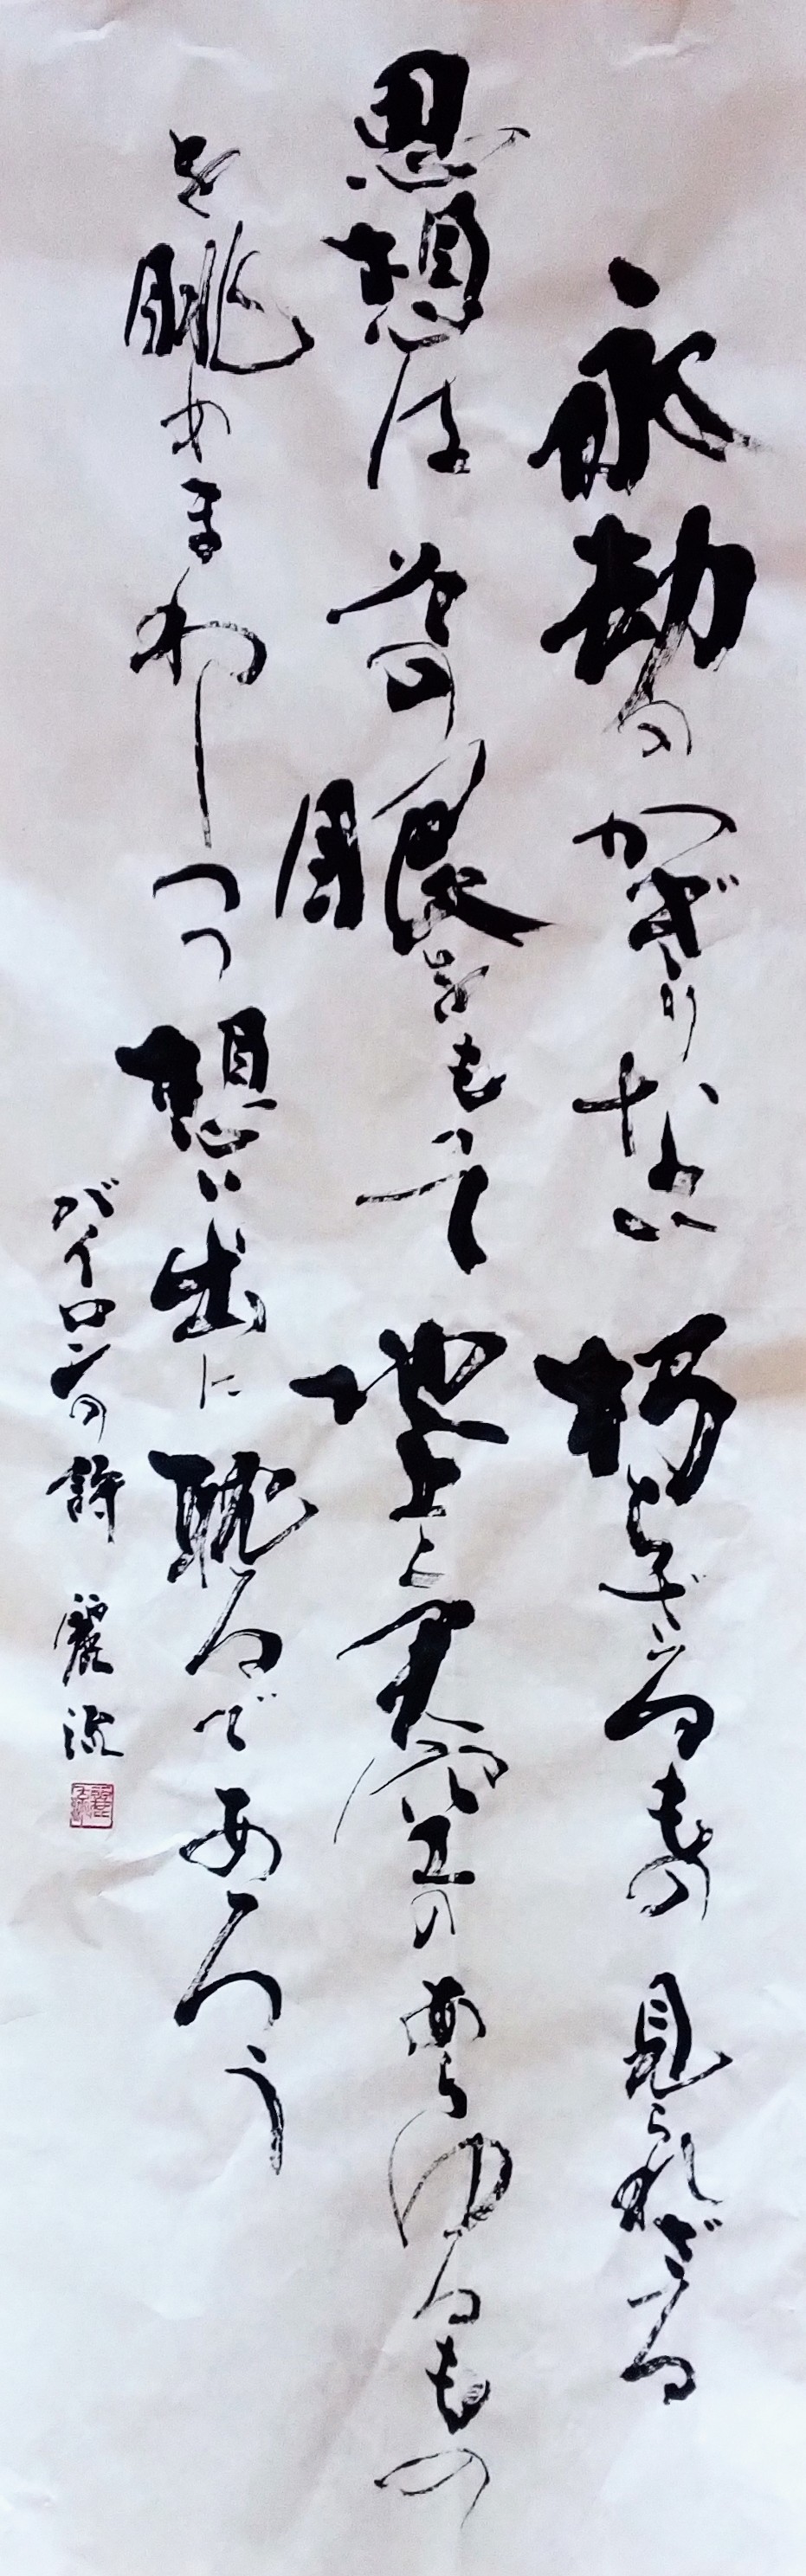 永劫のかぎりない 朽ちざるもの 見られざる
思想は 昔の眼をもて 地上と天空のあらゆるもの
を眺めまわしつつ 想い出に耽るであろう
バイロンの詩 麗流